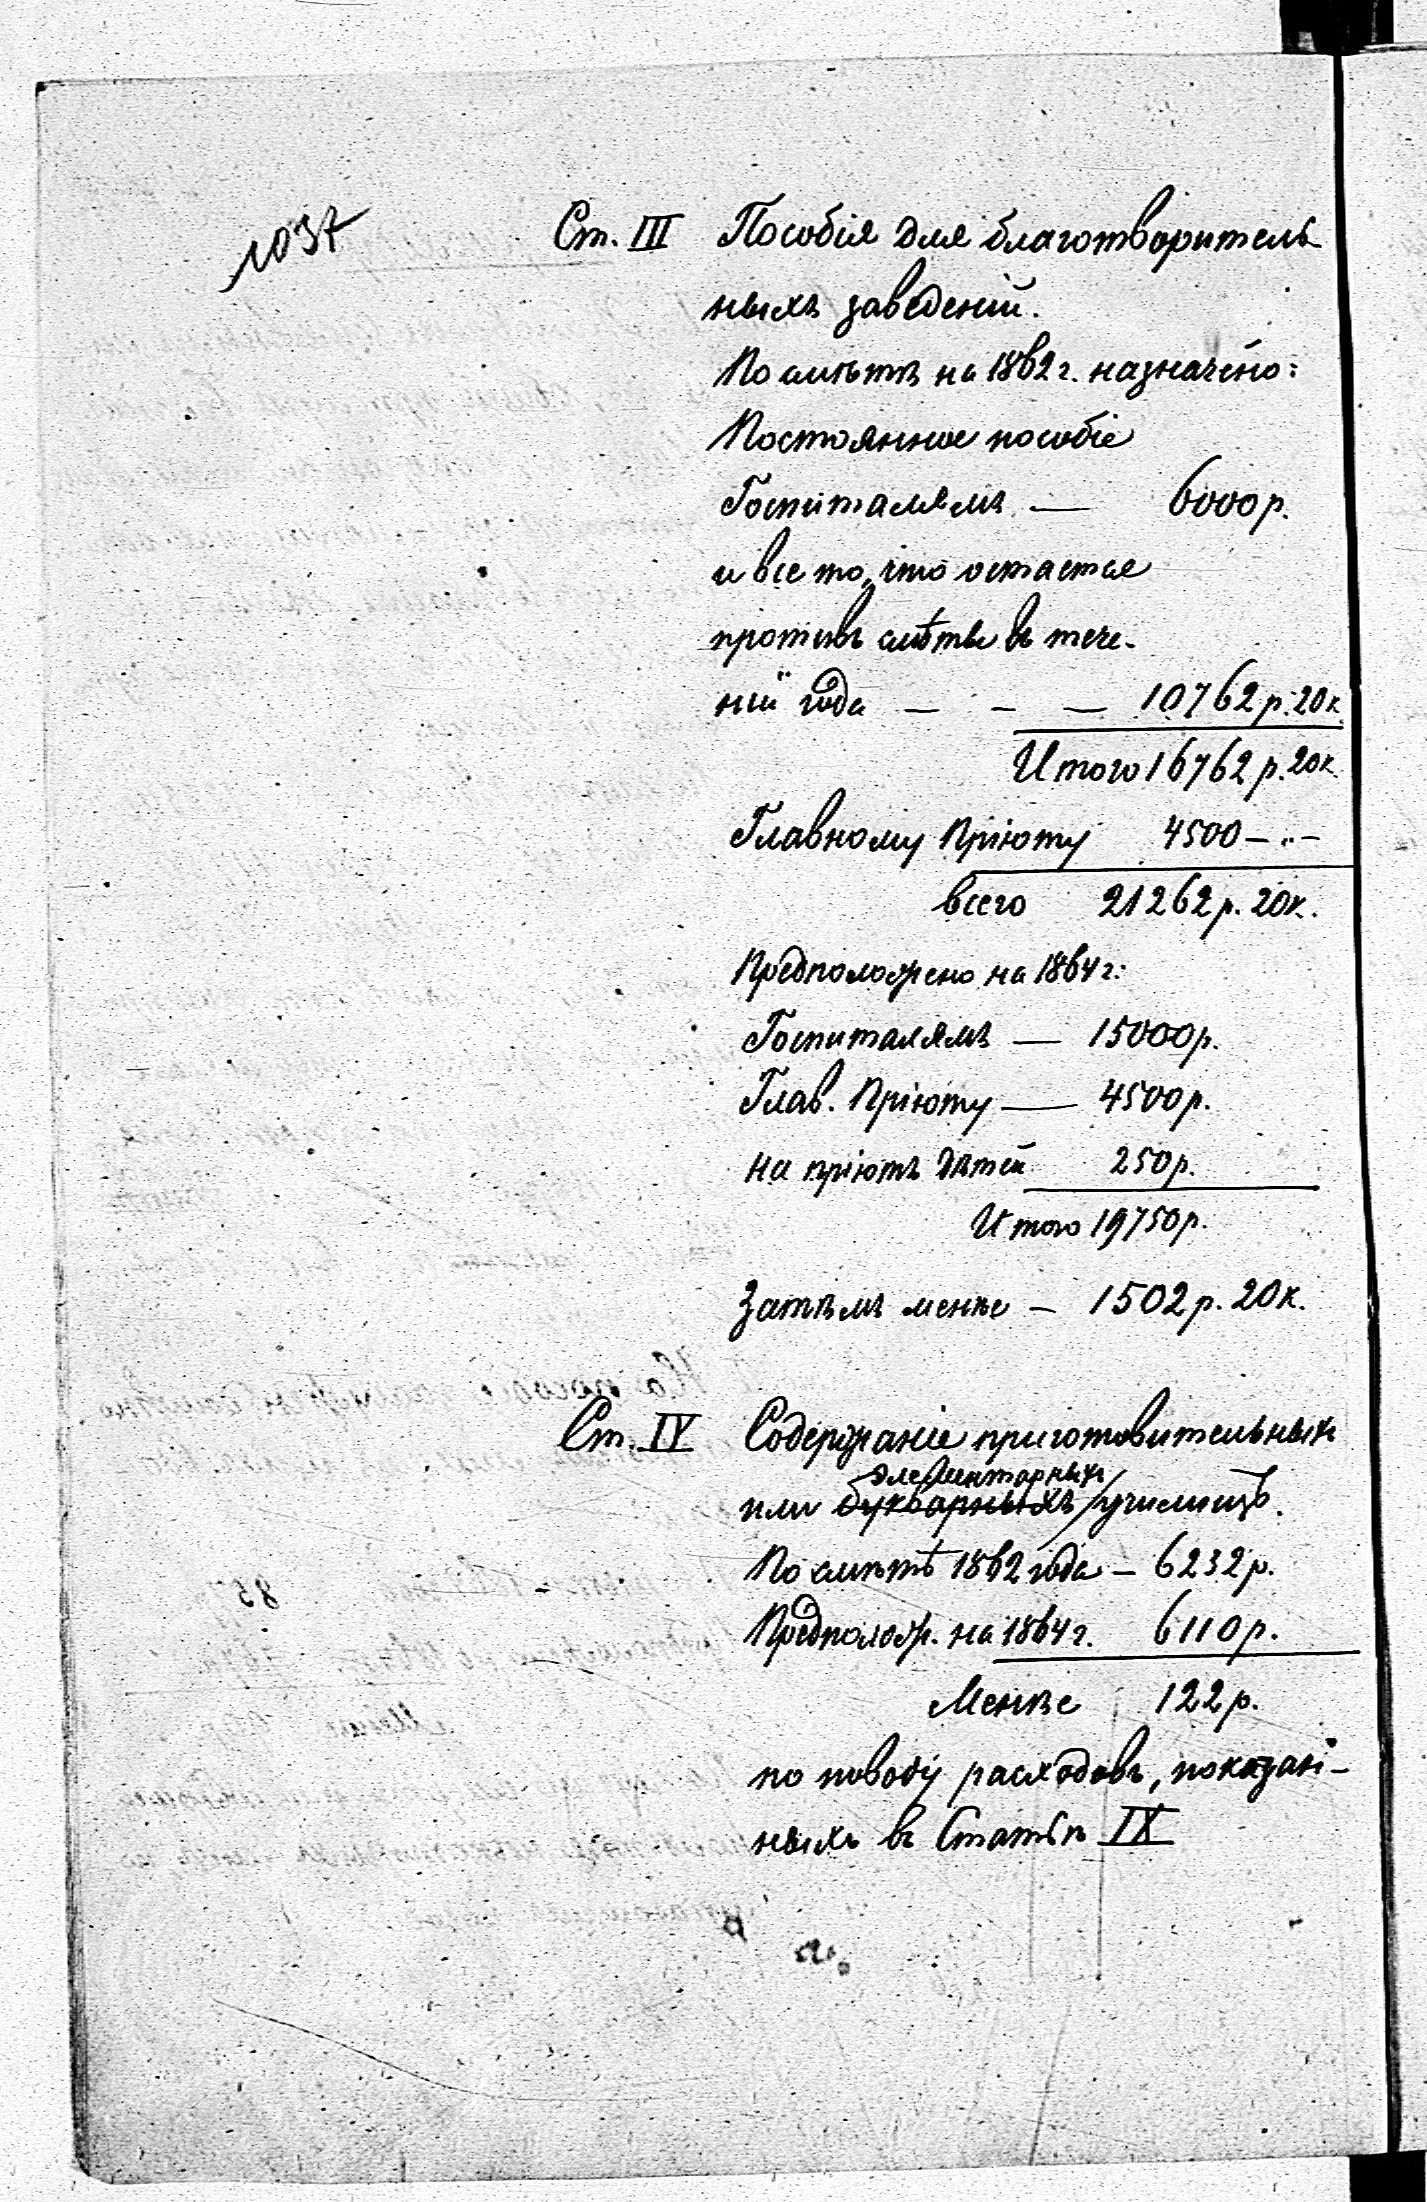 1037
Ст. III Пособія для благотворитель-
ныхъ заведеній.
По смѣтѣ на 1862 г. назначено:
Постоянное пособіе
Госпиталямъ — 6000 р.
и все то, что остается
противъ смѣты въ тече-
ніи года — - — 10762 р. 20 к.
Итого 16762 р. 20 к.
Главному Пріюту 4500 — „ —
всего 21262 р. 20 к.
Предположено на 1864 г:
Госпиталямъ — 15000 р.
Глав. Пріюту — 4500 р.
на пріютъ дѣтей 250 р.
Итого 19750 р.
Затѣмъ менѣе — 1502 р. 20 к.
Ст. IV Содержаніе приготовительныхъ
элементарныхъ
или букварныхъ училищъ.
По смѣтѣ 1862 года — 6232 р.
Предполож. на 1864 г. 6110 р.
Менѣе 122 р.
по поводу расходовъ, показан-
ныхъ въ Статьѣ IX